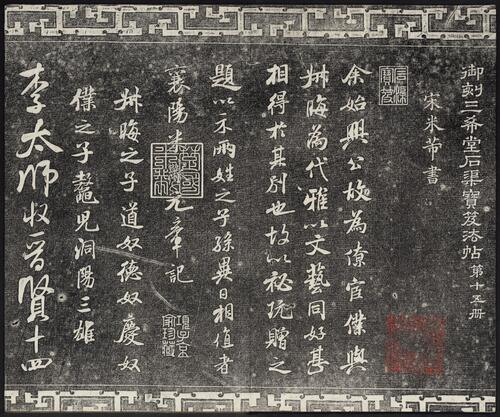 御刻三希堂石渠寶笈法帖 第十五册
宋米芾書
余始興公故為僚宦僕與
叔晦為代雅以文藝同好甚
相得於其別也故以秘玩贈之
題以示兩姓之子孫異日相值者
襄陽米黻元章記
叔晦之子道奴德奴慶奴
僕之子鼇兒洞陽三雄
李太師收晉賢十四
項子京家珍藏